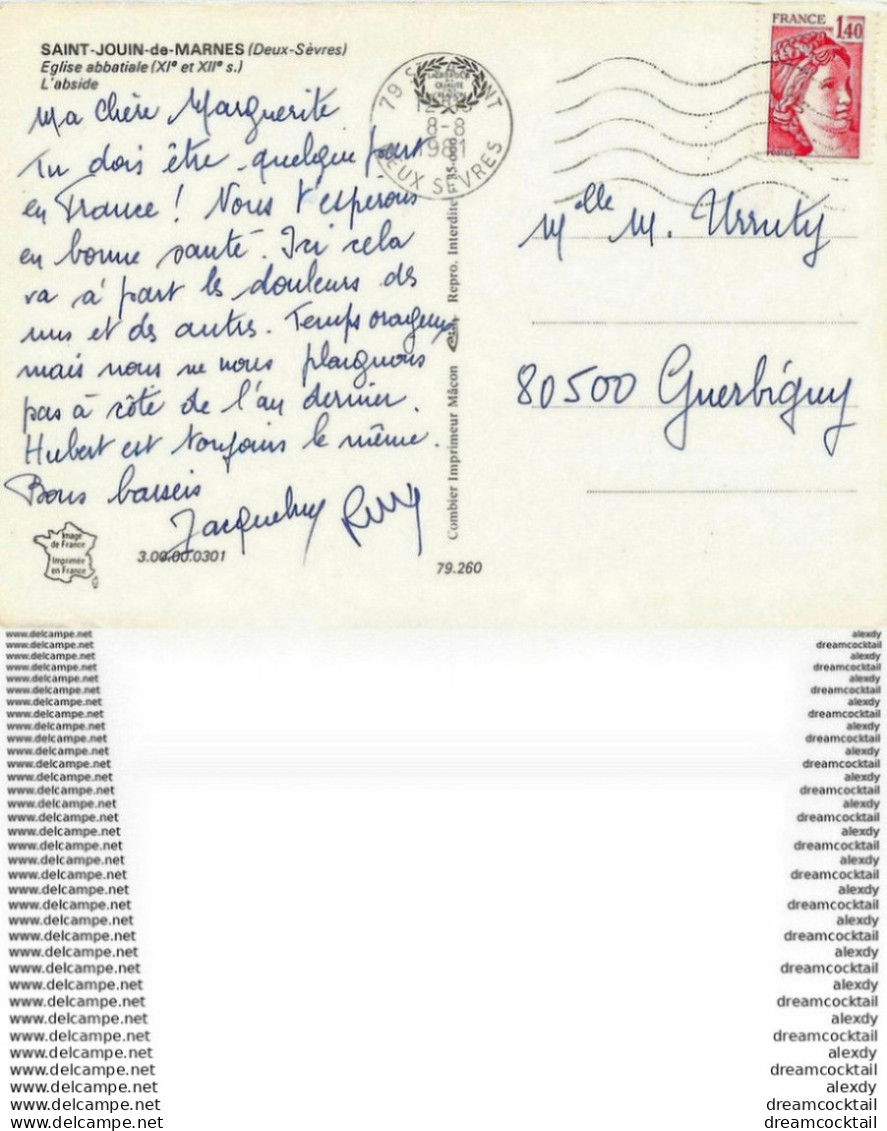 SAINT-JOUIN-de-MARNES (Deux-Sèvres)
Eglise abbatiale (XIe et XIIe s.)
L'abside
Ma chère Marguerite
Tu dois être quelque part
en France ! Nous t'esperons
en bonne santé. Ici cela
va à part les douleurs des
uns et des autres. Temps orageux
mais nous ne nous plaignons
pas à côté de l'an dernier.
Hubert est toujours le même.
Bons baisers
Image
de France
Imprimée
en France
3.00.00.0301
79.260
Combier Imprimeur Mâcon
Repro. Interdite
79
8-8
1981
DEUX SEVRES
FRANCE
1,40
POSTES
Mlle M. Urruty
80500 Guerbigny
www.delcampe.net alexdy
www.delcampe.net dreamcocktail
www.delcampe.net alexdy
www.delcampe.net dreamcocktail
www.delcampe.net alexdy
www.delcampe.net dreamcocktail
www.delcampe.net alexdy
www.delcampe.net dreamcocktail
www.delcampe.net alexdy
www.delcampe.net dreamcocktail
www.delcampe.net alexdy
www.delcampe.net dreamcocktail
www.delcampe.net alexdy
www.delcampe.net dreamcocktail
www.delcampe.net alexdy
www.delcampe.net dreamcocktail
www.delcampe.net alexdy
www.delcampe.net dreamcocktail
www.delcampe.net alexdy
www.delcampe.net dreamcocktail
www.delcampe.net alexdy
www.delcampe.net dreamcocktail
www.delcampe.net alexdy
www.delcampe.net dreamcocktail
www.delcampe.net alexdy
www.delcampe.net dreamcocktail
www.delcampe.net alexdy
www.delcampe.net dreamcocktail
www.delcampe.net alexdy
www.delcampe.net dreamcocktail
www.delcampe.net alexdy
www.delcampe.net dreamcocktail
www.delcampe.net alexdy
www.delcampe.net dreamcocktail
www.delcampe.net dreamcocktail